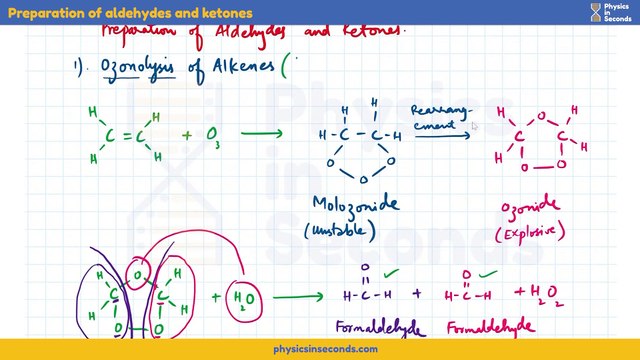 Preparation of aldehydes and ketones
Physics
in
Seconds
Preparation of Aldehydes and Ketones.
1). Ozonolysis of Alkenes (
H H H H Rearrang- O
C = C + O3 H - C - C - H ement H C C H
H H O O H O O H
O
Molozonide Ozonide
(Unstable) (Explosive)
H O H O O
C C + H2O H - C - H + H - C - H + H2O2
H O O H
Formaldehyde Formaldehyde
physicsinseconds.com